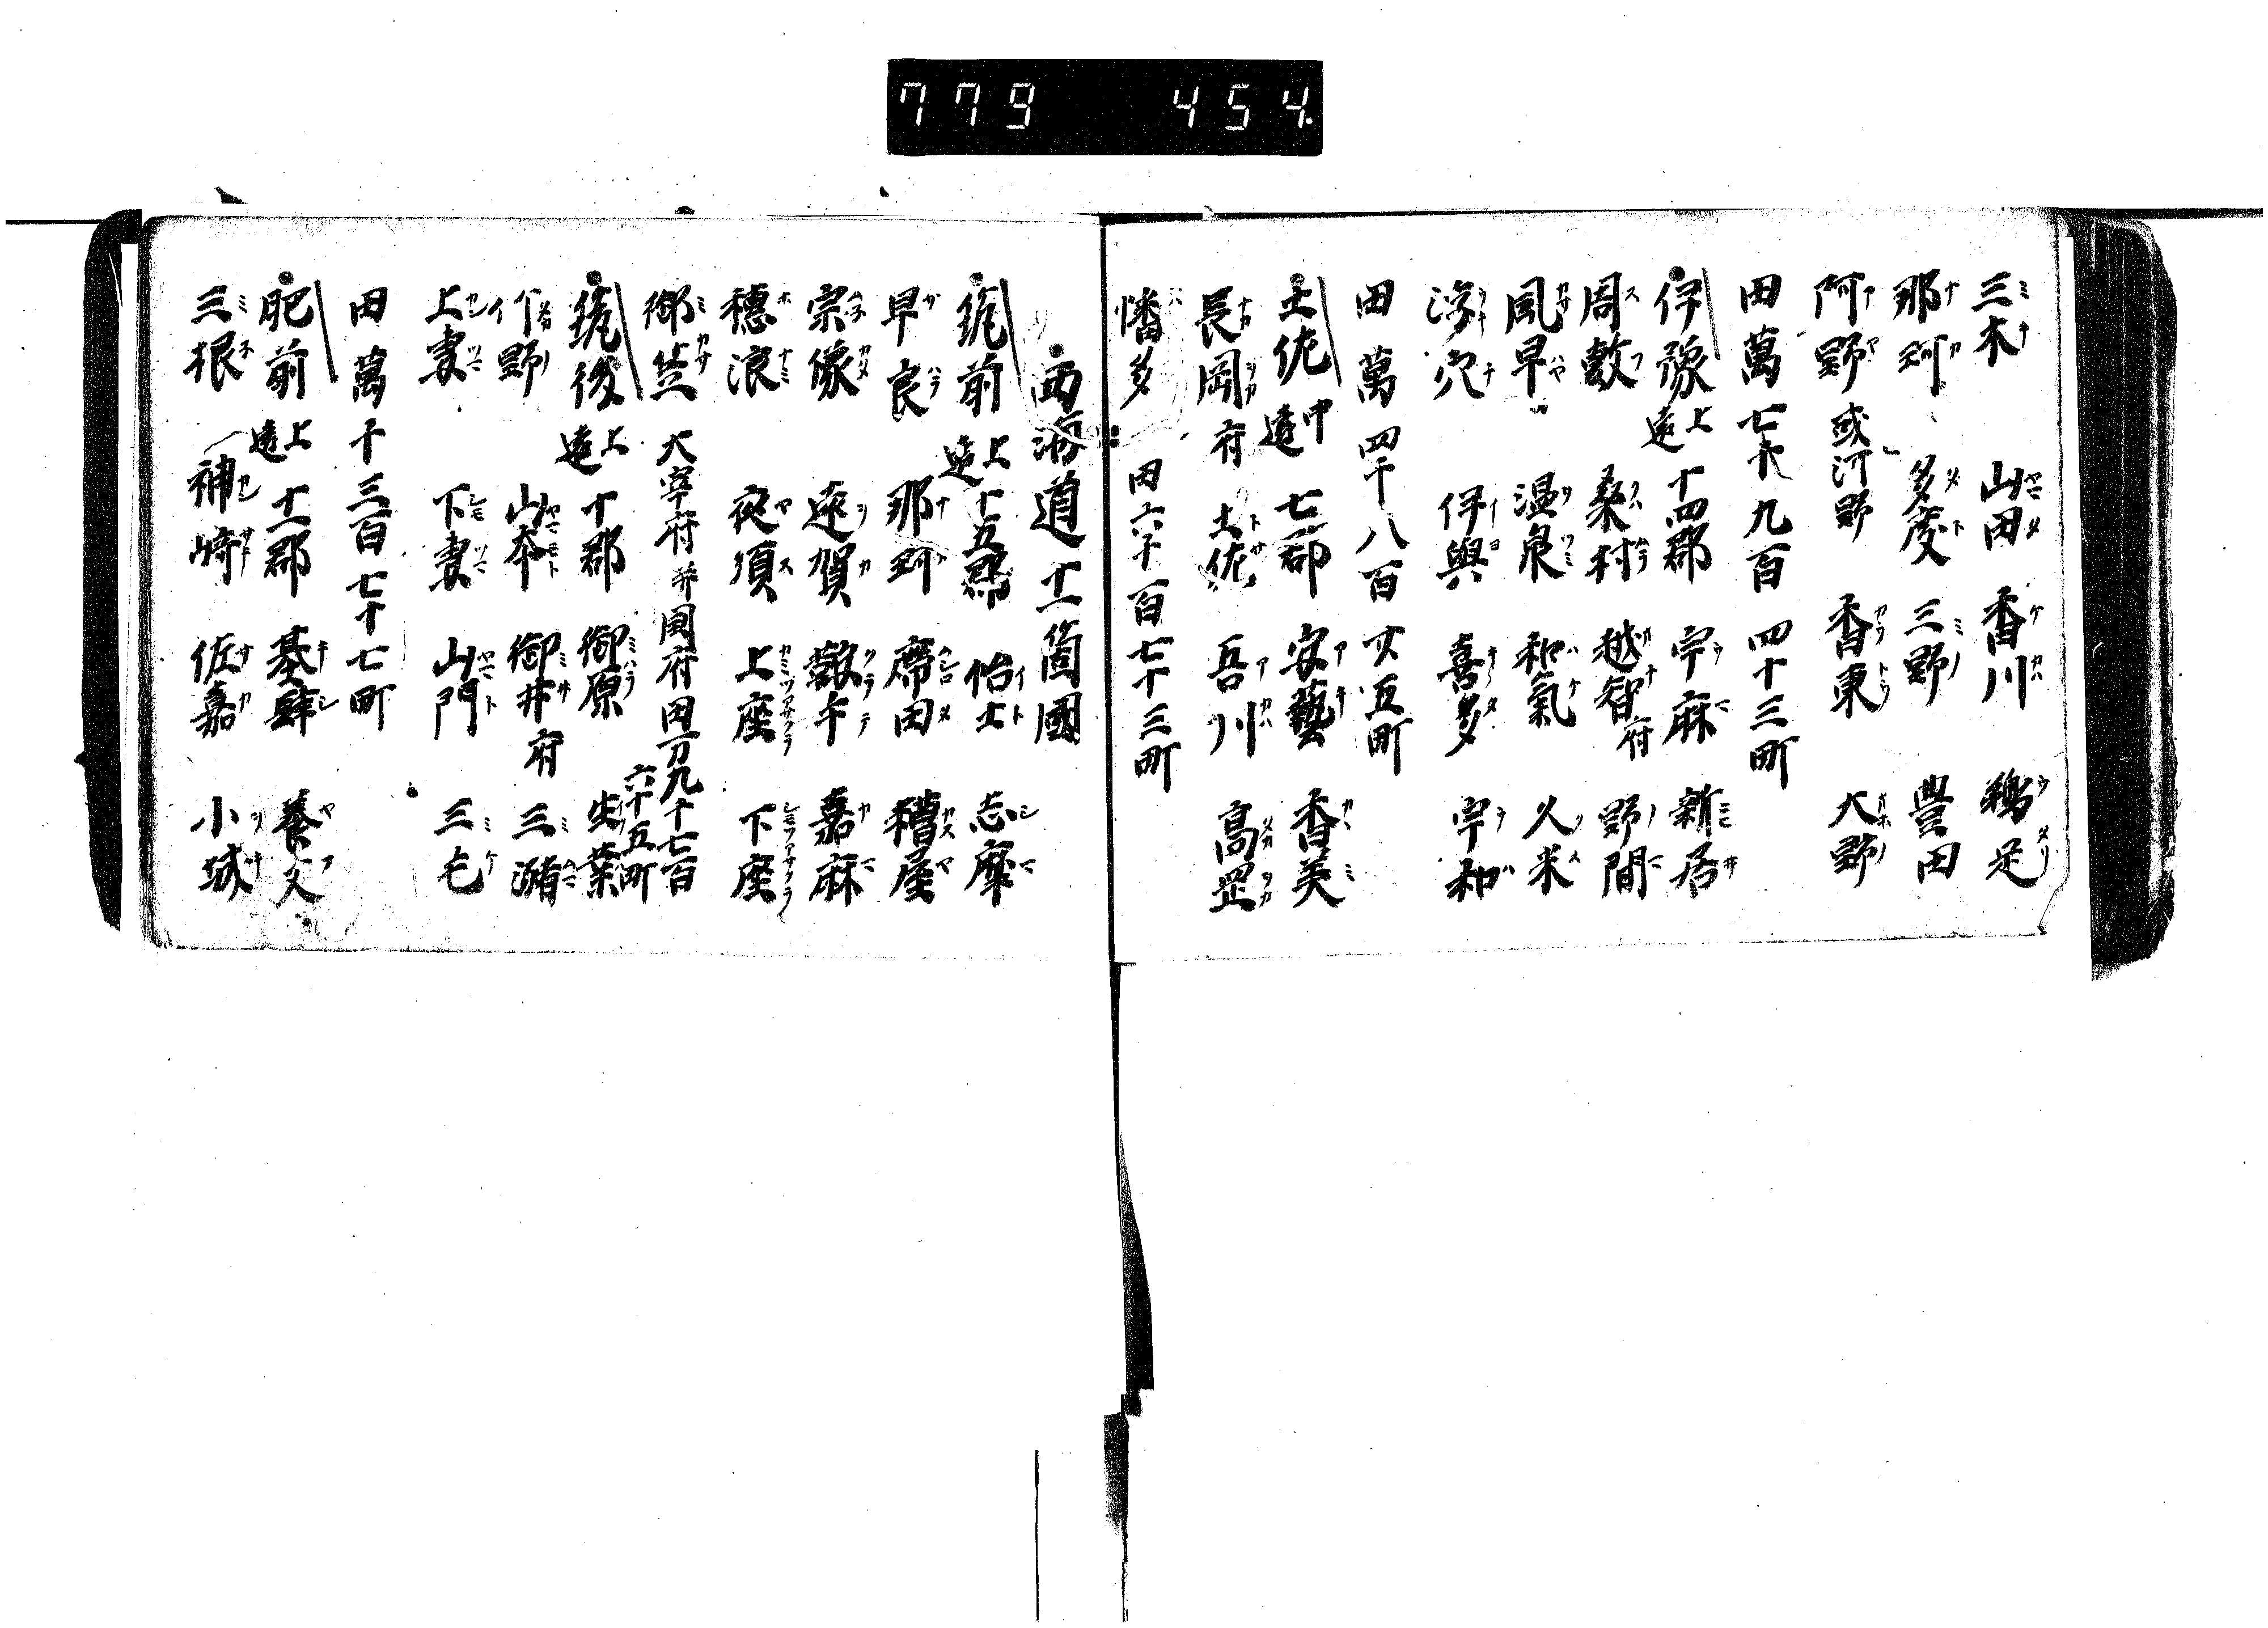 779 454
三木 山田 香川 鵜足
那珂 多度 三野 豊田
阿野 或河野 香東 大野
田萬七千九百四十三町
伊豫 上遠 十四郡 宇麻 新居
周敷 桑村 越智府 野間
風早 温泉 和氣 久米
浮穴 伊與 喜多 宇和
田萬四千八百 五町
土佐 中遠 七郡 安藝 香美
長岡府 土佐 吾川 高罡
幡多 田六千百七十三町
西海道十一箇國
筑前 上遠 十五郡 怡土 志摩
早良 那珂 席田 糟屋
宗像 遠賀 鞍手 嘉麻
穂浪 夜須 上座 下座
御笠 大宰府并国府田万九千七百六十五町
筑後 上遠 十郡 御原 生葉
竹野 山本 御井府 三潴
上妻 下妻 山門 三毛
田萬千三百七十七町
肥前 上遠 十一郡 基肄 養父
三根 神崎 佐嘉 小城